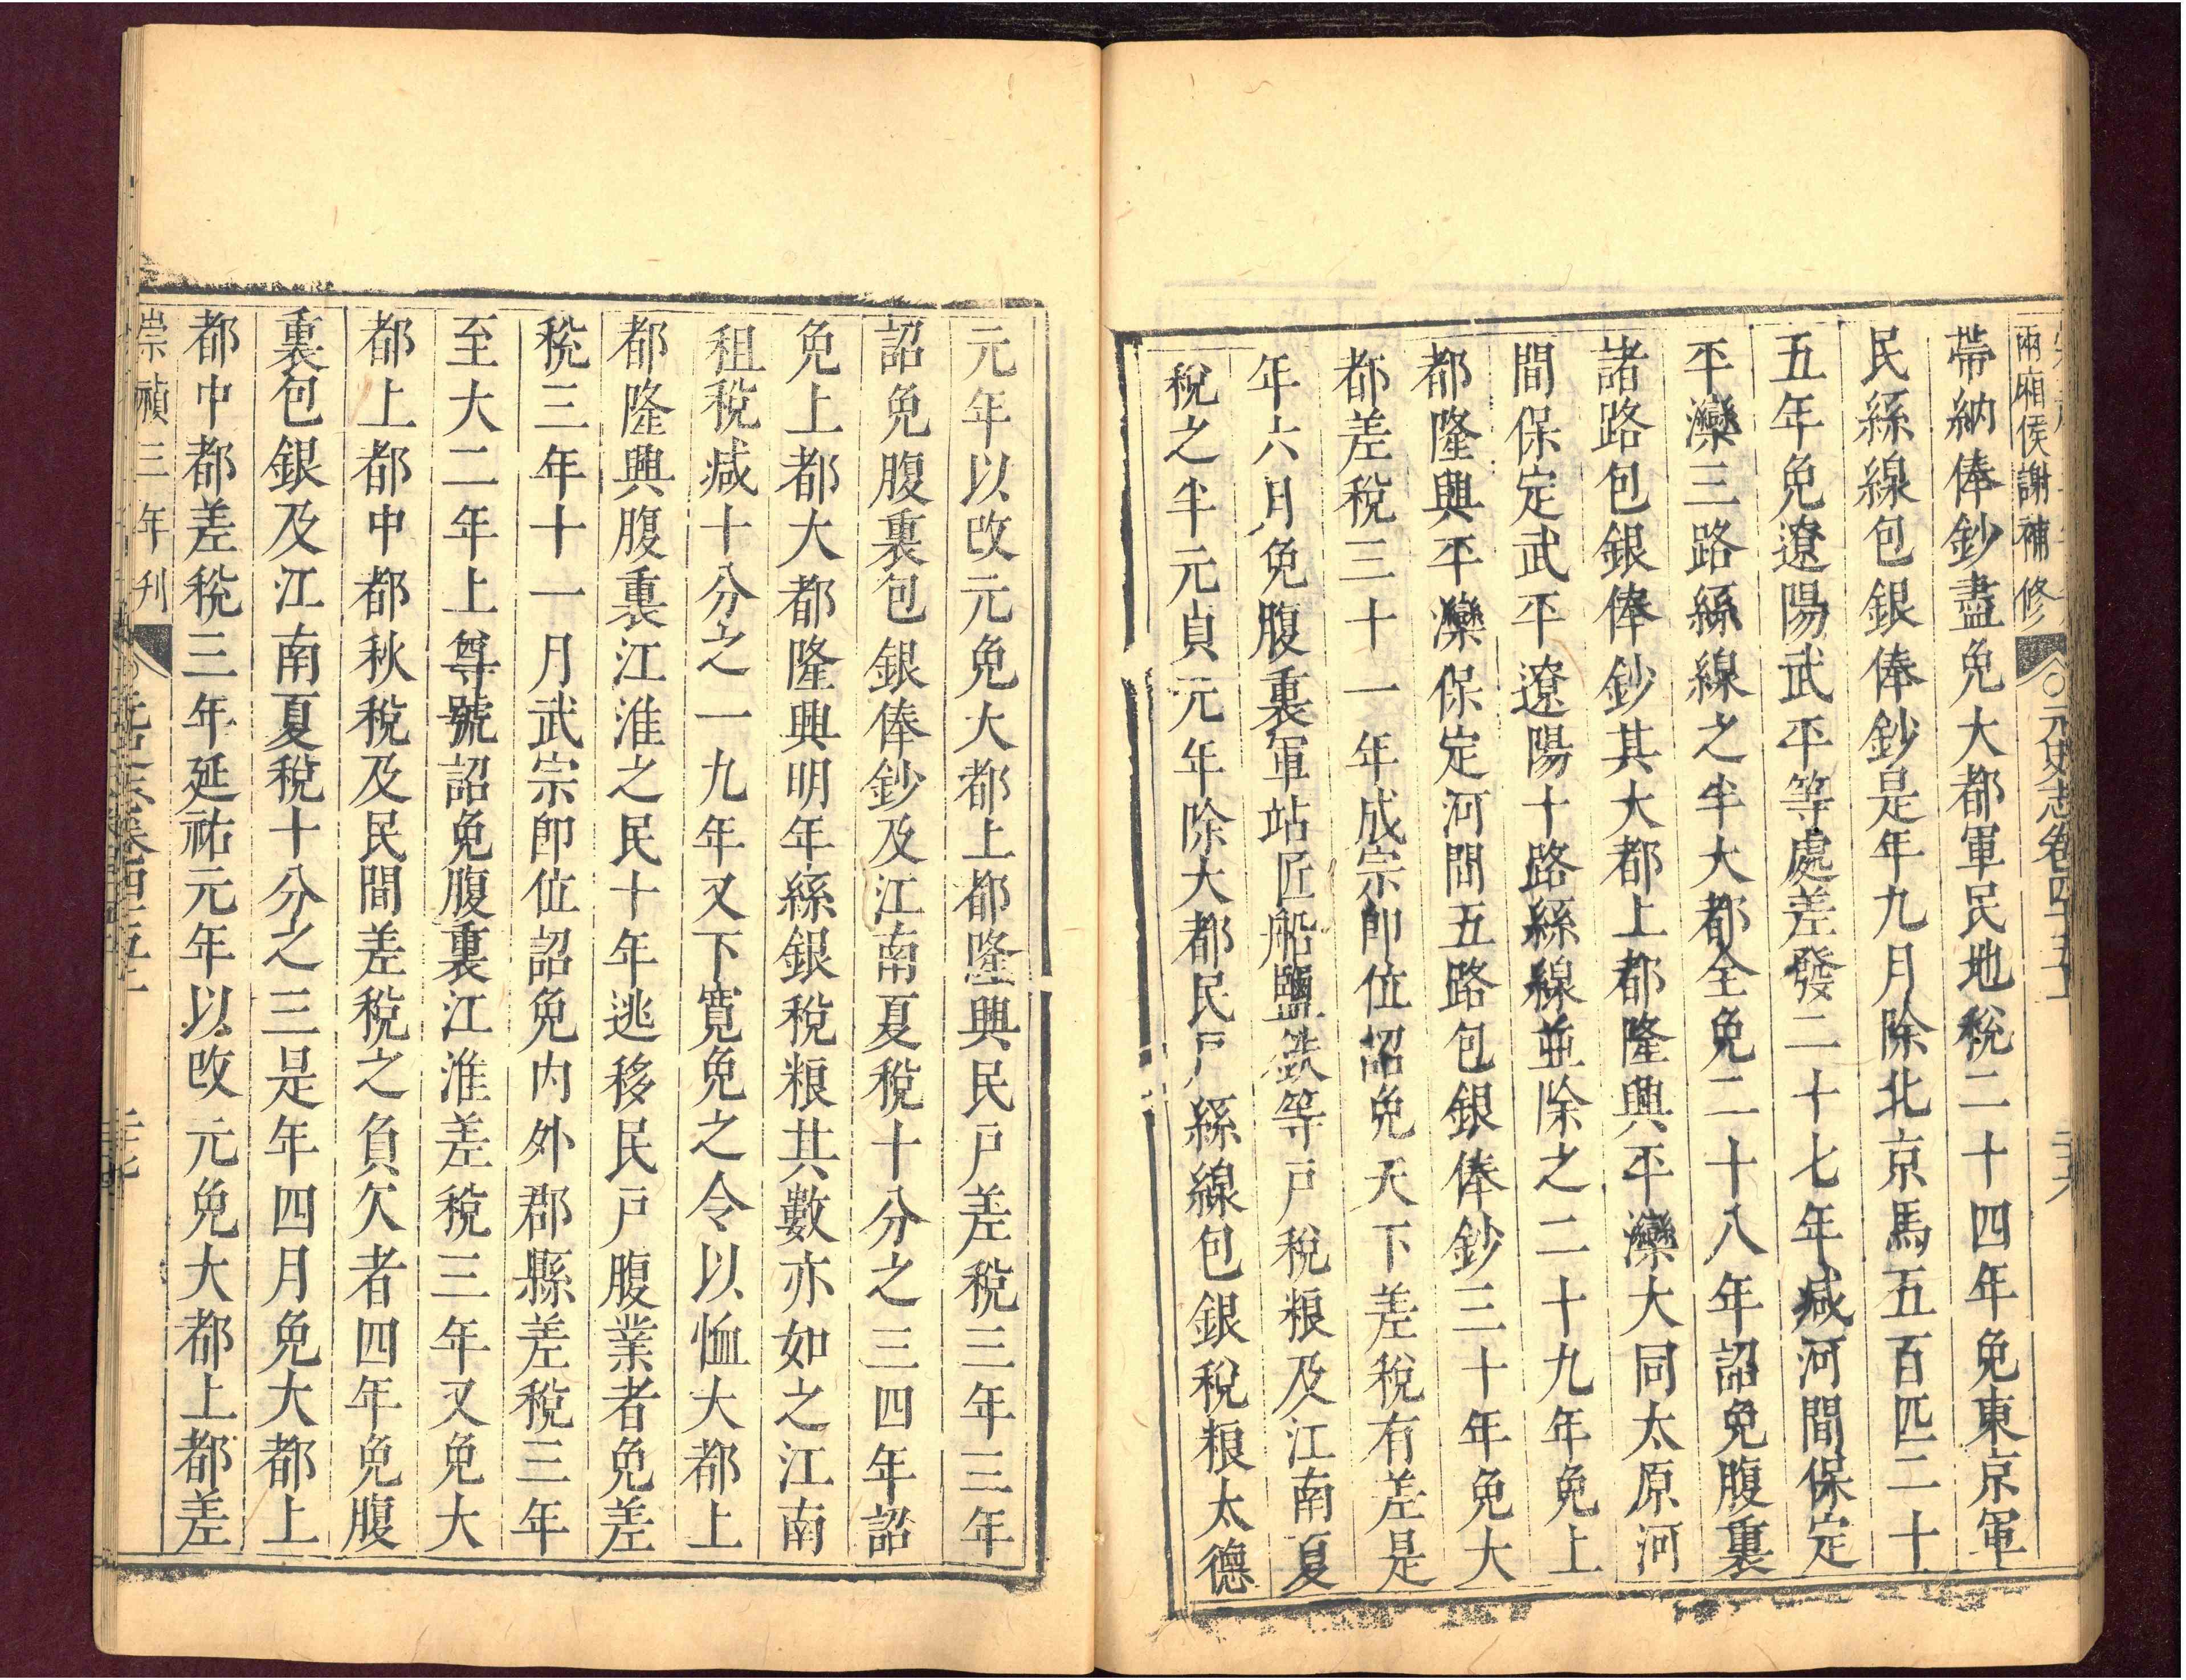 兩廂侯謝補修
元史志卷四十五上
帶納俸鈔盡免大都軍民地稅二十四年免東京軍
民絲線包銀俸鈔是年九月除北京馬五百匹二十
五年免遼陽武平等處差發二十七年减河間保定
平灤三路絲線之半大都全免二十八年詔免腹裏
諸路包銀俸鈔其大都上都隆興平灤大同太原河
間保定武平遼陽十路絲線並除之二十九年免上
都隆興平灤保定河間五路包銀俸鈔三十年免大
都差稅三十一年成宗卽位詔免天下差稅有差是
年六月免腹裏軍站匠船鹽鉄等戸稅粮及江南夏
稅之半元貞元年除大都民戸絲線包銀稅粮太德
元年以改元免大都上都隆興民戸差稅三年三年
詔免腹裏包銀俸鈔及江南夏稅十分之三四年詔
免上都大都隆興明年絲銀稅粮共數亦如之江南
租稅减十分之一九年又下寬免之令以恤大都上
都隆興腹裏江淮之民十年逃移民戸腹業者免差
稅三年十一月武宗卽位詔免内外郡縣差稅三年
至大二年上尊號詔免腹裏江淮差稅三年又免大
都上都中都秋稅及民間差稅之負欠者四年免腹
裏包銀及江南夏稅十分之三是年四月免大都上
都中都差稅三年延祐元年以改元免大都上都差
崇禎三年刊